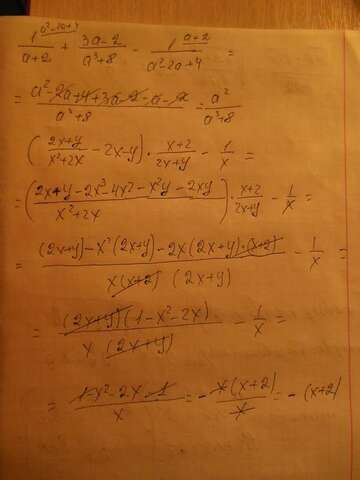 1^{a²-2a+4}/(a+2) + (3a-2)/(a³+8) - 1^{a+2}/(a²-2a+4) =
= (a²-2a+4+3a-2-a-2)/(a³+8) = a²/(a³+8)
((2x+y)/(x²+2x) - 2x-y) · (x+2)/(2x+y) - 1/x =
= ((2x+y-2x³-4x²-x²y-2xy)/(x²+2x)) · (x+2)/(2x+y) - 1/x =
= ((2x+y)-x²(2x+y)-2x(2x+y)·(x+2))/(x(x+2)(2x+y)) - 1/x =
= ((2x+y)(1-x²-2x))/(x(2x+y)) - 1/x =
= (1-x²-2x-1)/x = - x(x+2)/x = - (x+2)